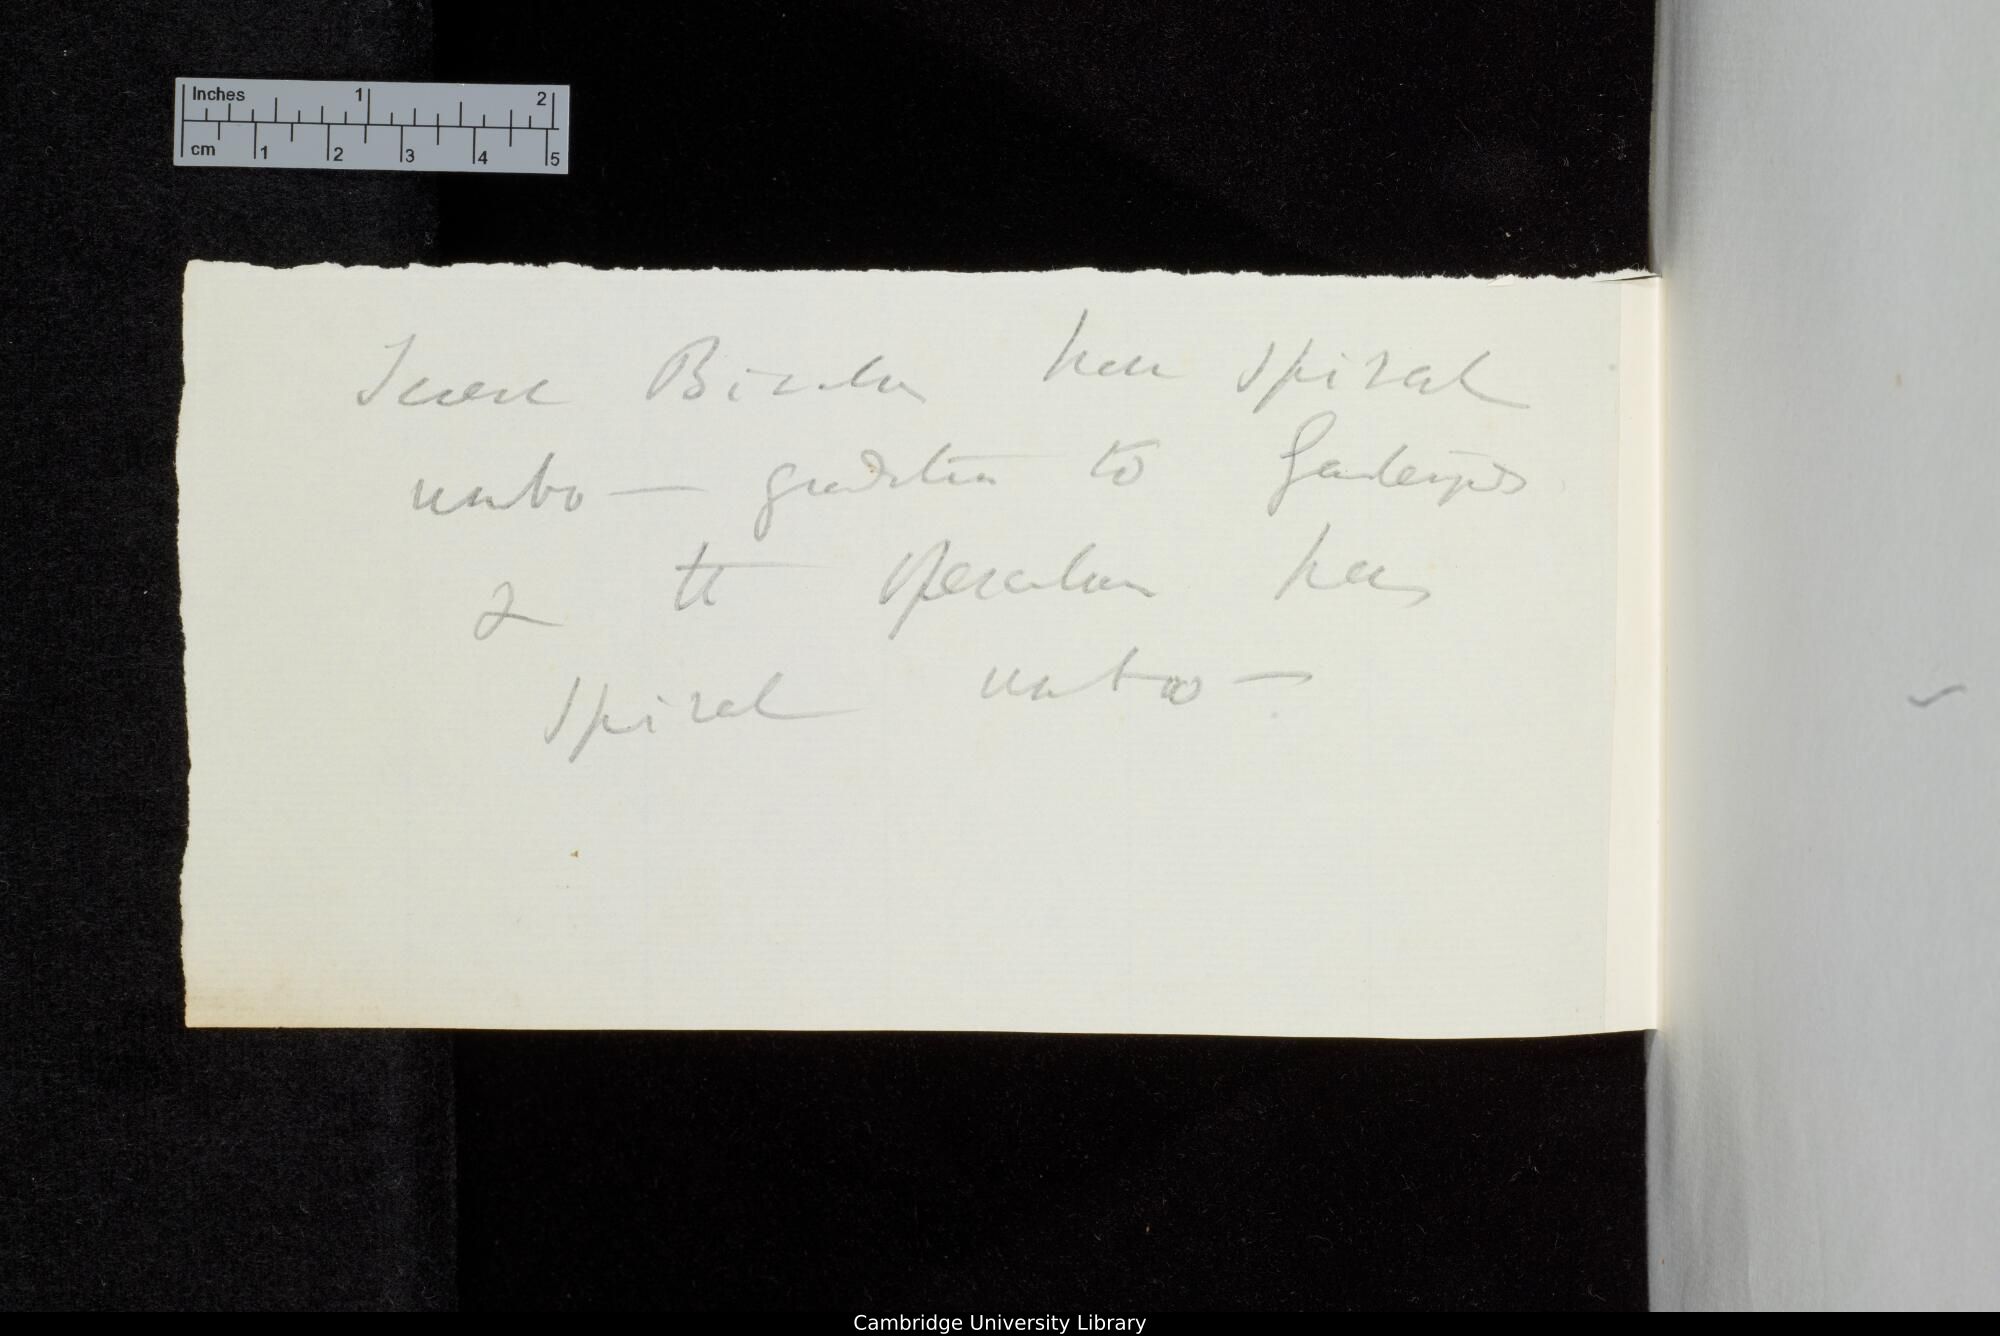 Inches 1 2
cm 1 2 3 4 5
Some Bivalves have spiral
umbo — gradation to Gasteropods
& the operculum has
spiral umbo —
Cambridge University Library